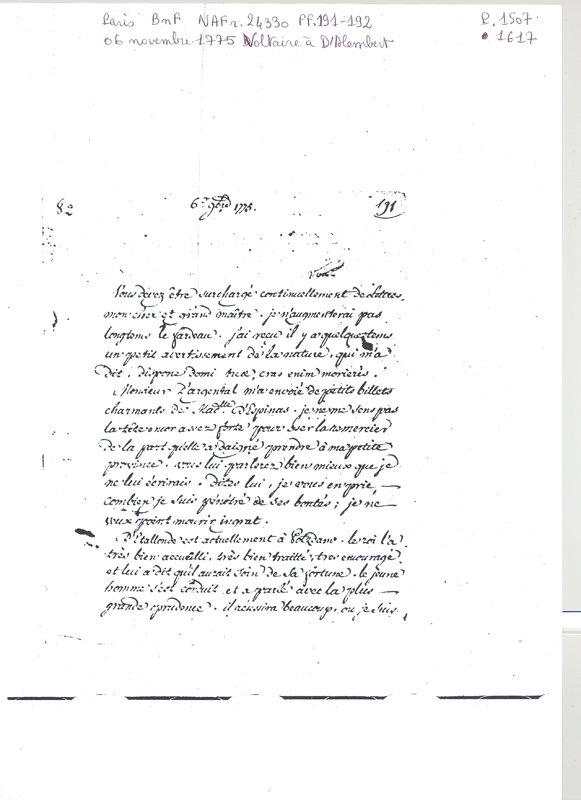 Paris BnF NAFr. 24330 Pf. 191-192
P. 1507
06 novembre 1775 Voltaire à D'Alembert
• 1617
8º
6e 9bre 1775.
191
Vous devez être surchargé continuellement de lettres,
mon cher et grand maître. je n'augmenterai pas
longtems le fardeau. j'ai reçu il y a quelque tems
un petit avertissement de la nature, qui m'a
dit, dispone domui tuæ, cras enim morieris.
Monsieur D'argental m'a envoié de petits billets
charmants de Madlle D'Espinas. je ne me sens pas
la tête encor assez forte pour oser la remercier
de la part qu'elle a daigné prendre à ma petite
province. vous lui parlerez bien mieux que je
ne lui écrirais. Dites lui, je vous en prie —
combien je suis pénétré de ses bontés; je ne
veux point mourir ingrat.
D'Etallonde est actuellement à Potzdam. le roi l'a
très bien accueilli, très bien traitté, tres encouragé
et lui a dit qu'il aurait soin de sa fortune. le jeune
homme s'est conduit et a parlé avec la plus —
grande prudence. il réussira beaucoup, ou je suis